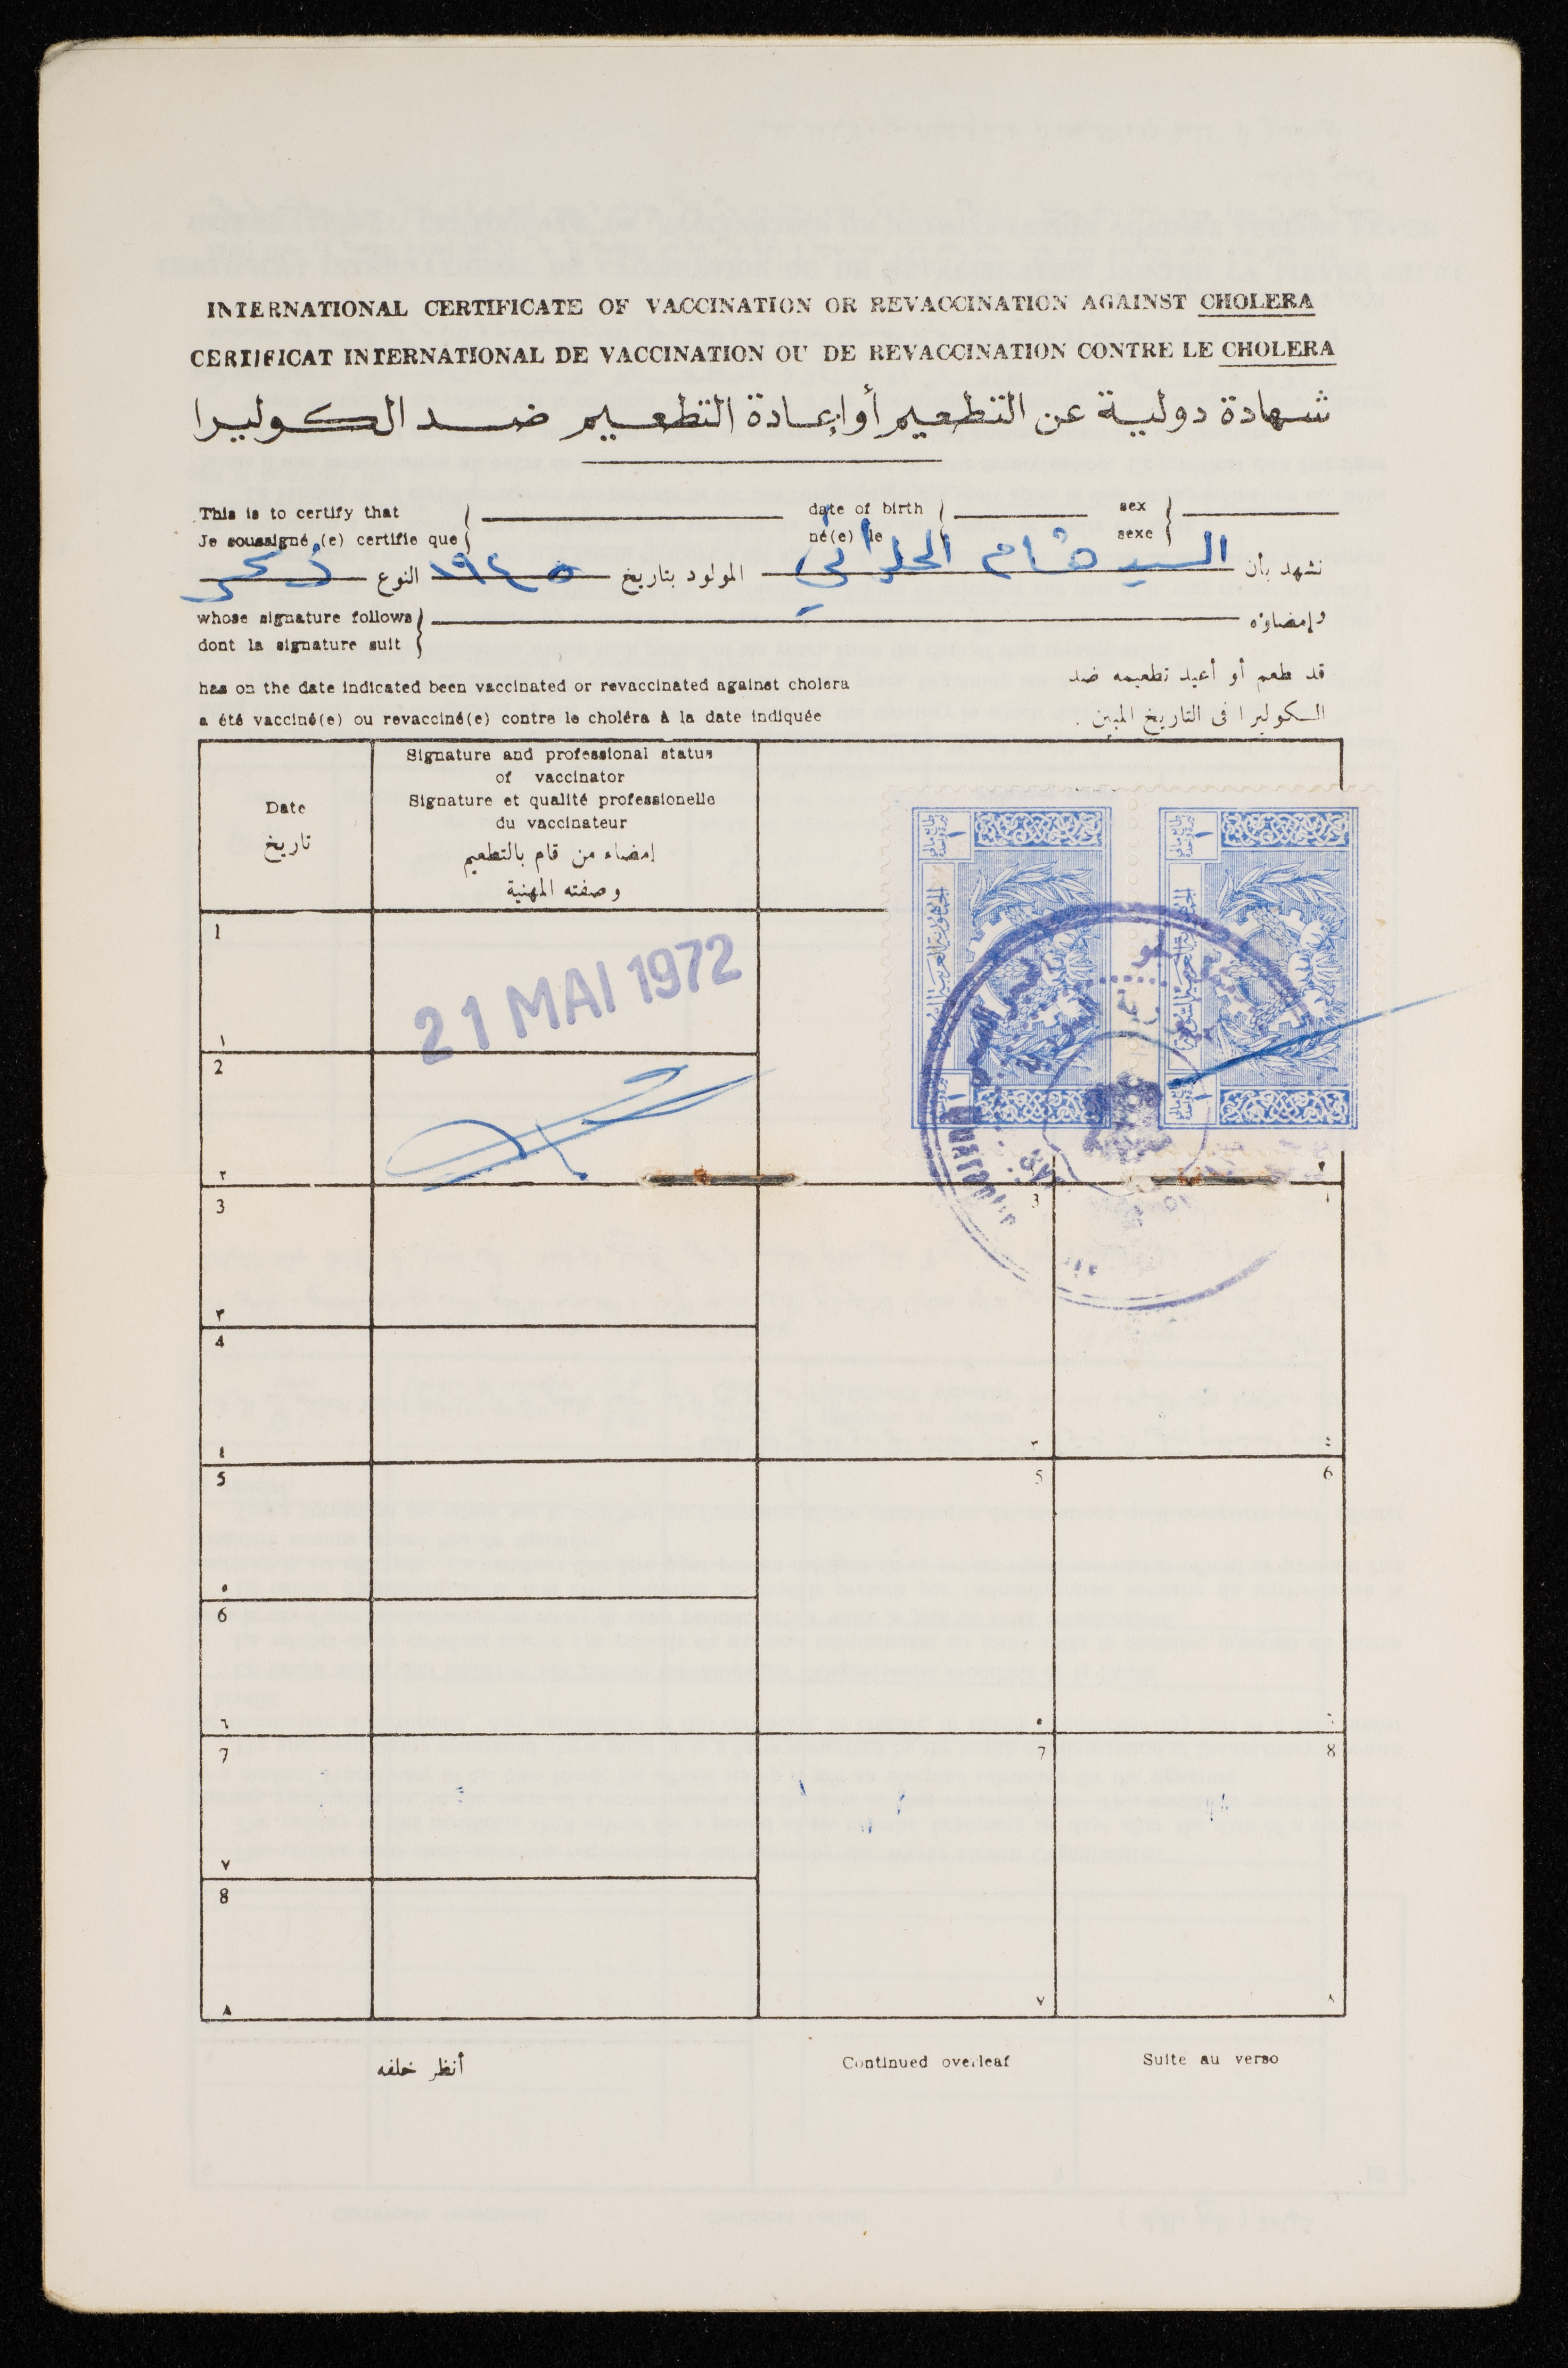 INTERNATIONAL CERTIFICATE OF VACCINATION OR REVACCINATION AGAINST CHOLERA
CERTIFICAT INTERNATIONAL DE VACCINATION OU DE REVACCINATION CONTRE LE CHOLERA
شهادة دولية عن التطعيم أو إعادة التطعيم ضد الكوليرا
This is to certify that date of birth sex
Je soussigné (e) certifie que né(e) le sexe
نشهد بأن السيد هشام المولود بتاريخ ١٩٤٥ النوع ذكر
whose signature follows وإمضاؤه
dont la signature suit
has on the date indicated been vaccinated or revaccinated against cholera قد طعم أو أعيد تطعيمه ضد
a été vacciné(e) ou revacciné(e) contre le choléra à la date indiquée الكوليرا فى التاريخ المبين .
Date
تاريخ
Signature and professional status
of vaccinator
Signature et qualité professionelle
du vaccinateur
إمضاء من قام بالتطعيم
وصفته المهنية
1
21 MAI 1972
١
2
٢
3 3
٣
4
٤ ٣
5 5 6
٥
6
٦ ٥
7 7 8
٧
8
٨ ٧ ٨
أنظر خلفه Continued overleaf Suite au verso